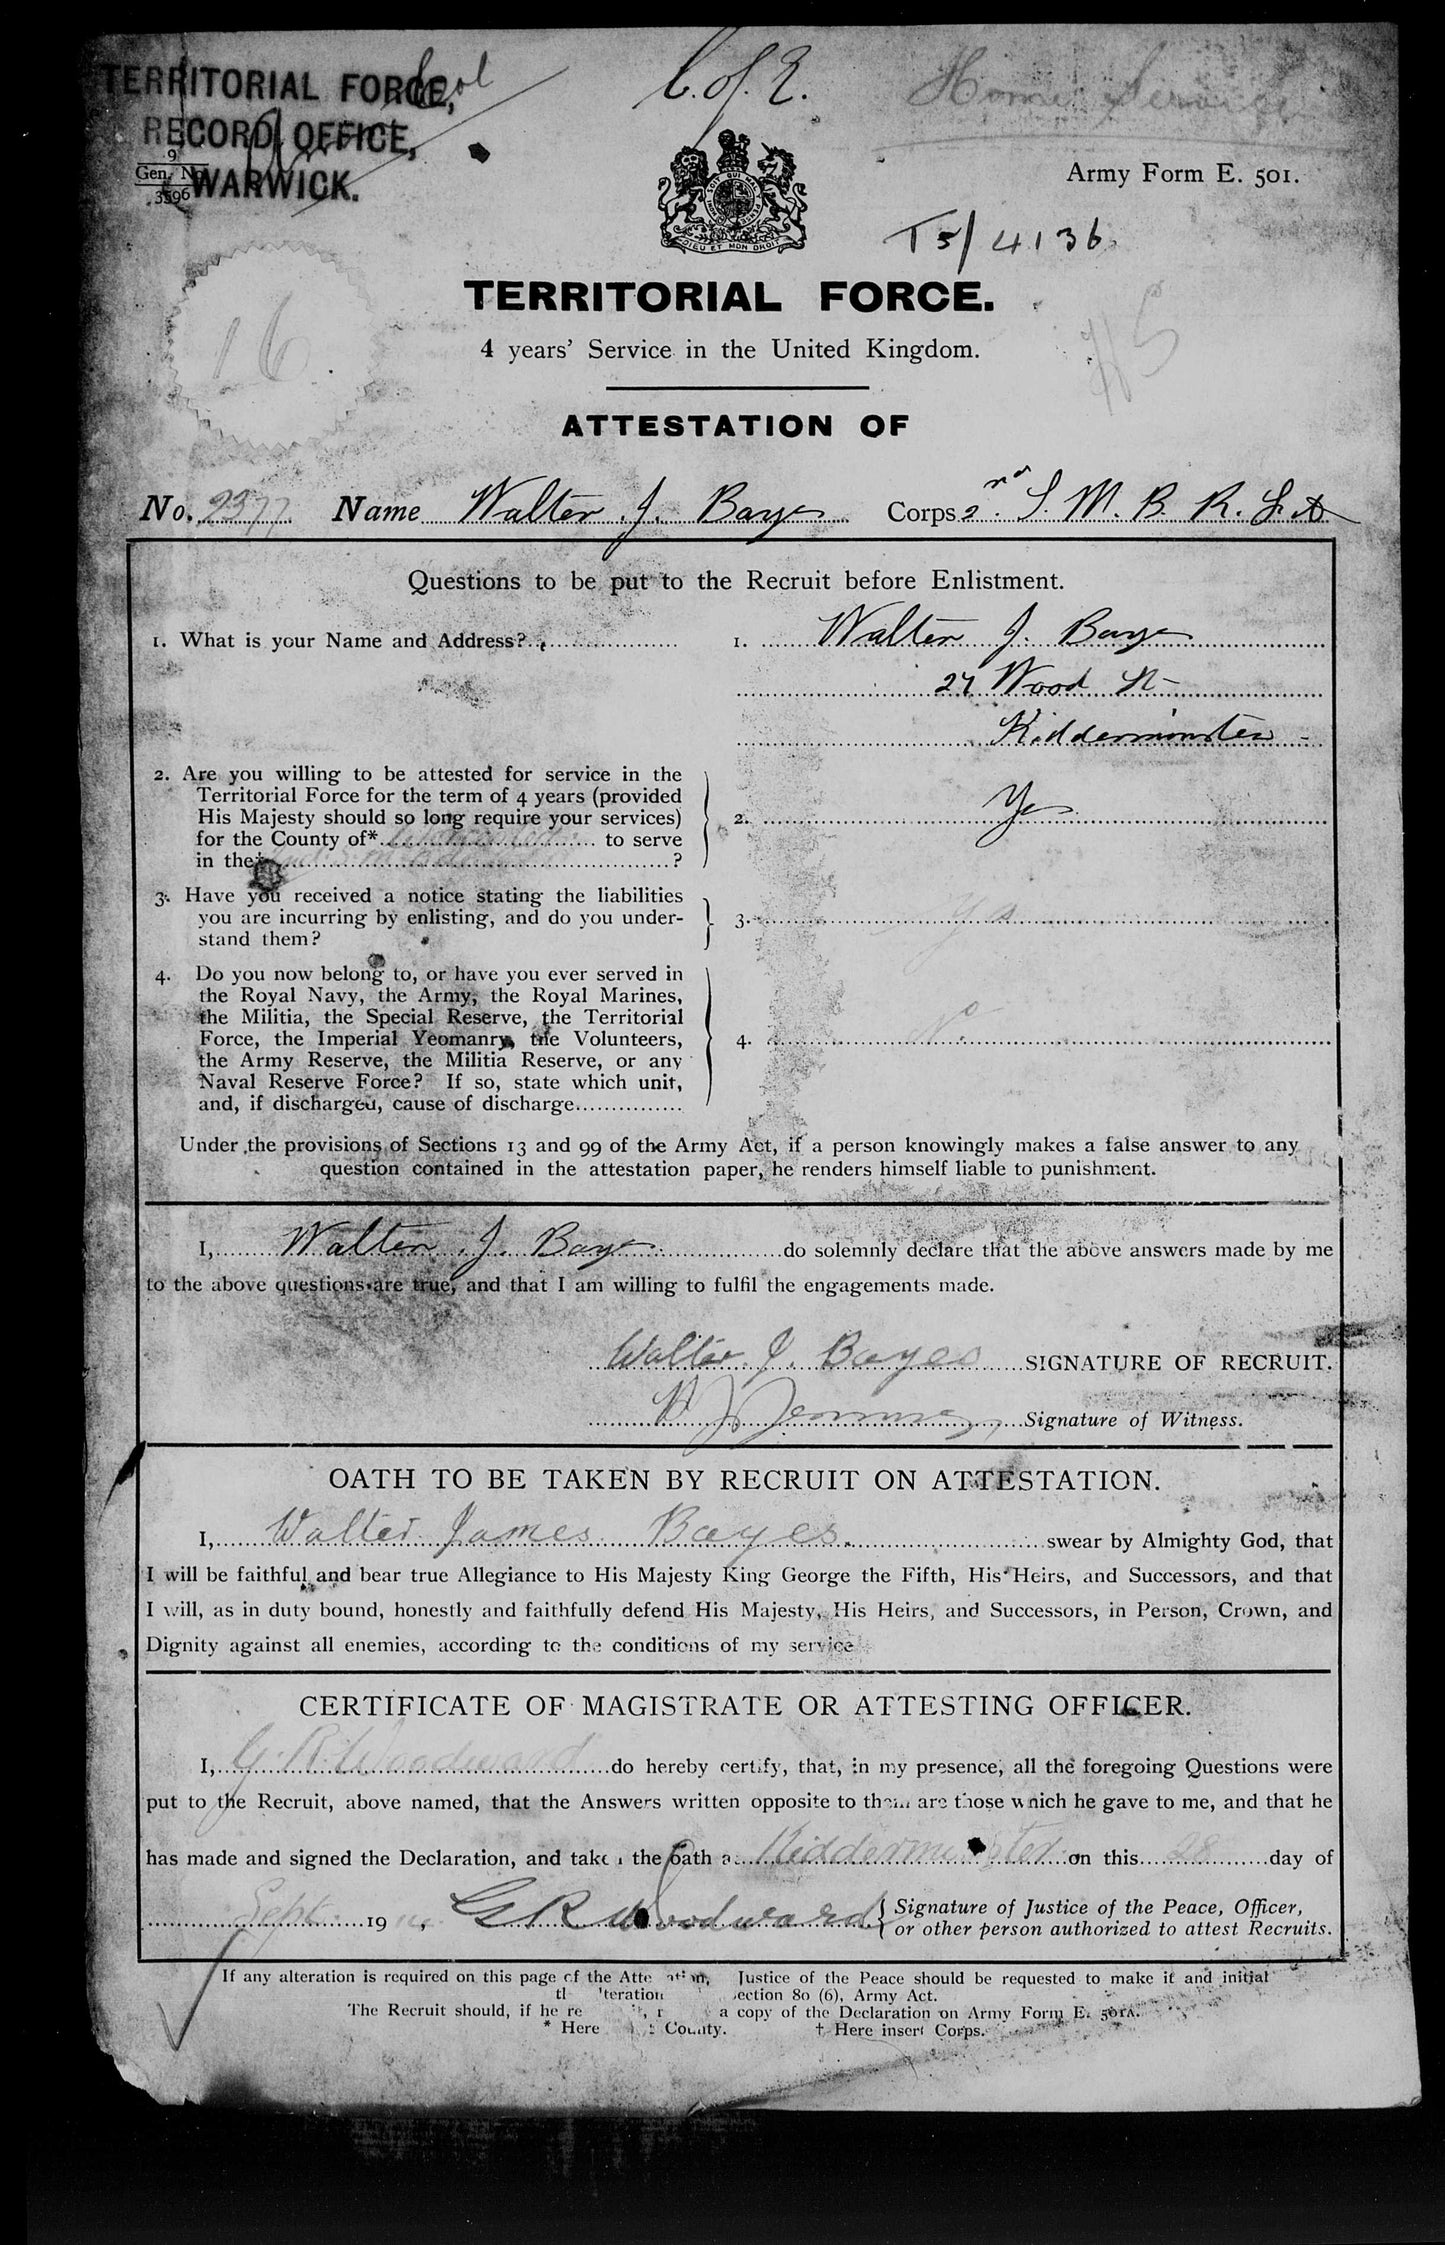 TERRITORIAL FORCE,
RECORD OFFICE,
WARWICK.
C. of E.
Home Service
9
Gen. No.
3596
Army Form E. 501.
T5/4136
16
TERRITORIAL FORCE.
4 years' Service in the United Kingdom.
ATTESTATION OF
No. 2377 Name Walter J. Bayes Corps 2nd S. M. B. R. F. A
Questions to be put to the Recruit before Enlistment.
1. What is your Name and Address? 1. Walter J. Bayes
27 Wood St
Kidderminster
2. Are you willing to be attested for service in the
Territorial Force for the term of 4 years (provided
His Majesty should so long require your services)
for the County of* Worcester to serve
in the† ?
2. Yes
3. Have you received a notice stating the liabilities
you are incurring by enlisting, and do you under-
stand them?
3. Yes
4. Do you now belong to, or have you ever served in
the Royal Navy, the Army, the Royal Marines,
the Militia, the Special Reserve, the Territorial
Force, the Imperial Yeomanry, the Volunteers,
the Army Reserve, the Militia Reserve, or any
Naval Reserve Force? If so, state which unit,
and, if discharged, cause of discharge
4. No
Under the provisions of Sections 13 and 99 of the Army Act, if a person knowingly makes a false answer to any
question contained in the attestation paper, he renders himself liable to punishment.
I, Walter J. Bayes do solemnly declare that the above answers made by me
to the above questions are true, and that I am willing to fulfil the engagements made.
Walter J. Bayes SIGNATURE OF RECRUIT.
Signature of Witness.
OATH TO BE TAKEN BY RECRUIT ON ATTESTATION.
I, Walter James Bayes. swear by Almighty God, that
I will be faithful and bear true Allegiance to His Majesty King George the Fifth, His Heirs, and Successors, and that
I will, as in duty bound, honestly and faithfully defend His Majesty, His Heirs, and Successors, in Person, Crown, and
Dignity against all enemies, according to the conditions of my service
CERTIFICATE OF MAGISTRATE OR ATTESTING OFFICER.
I, G. R. Woodward do hereby certify, that, in my presence, all the foregoing Questions were
put to the Recruit, above named, that the Answers written opposite to them are those which he gave to me, and that he
has made and signed the Declaration, and taken the oath at Kidderminster on this 28 day of
Sept 1914, G R Woodward Signature of Justice of the Peace, Officer,
or other person authorized to attest Recruits.
If any alteration is required on this page of the Attestation, Justice of the Peace should be requested to make it and initial
section 80 (6), Army Act.
The Recruit should, if he re a copy of the Declaration on Army Form E. 501A.
* Here County. † Here insert Corps.